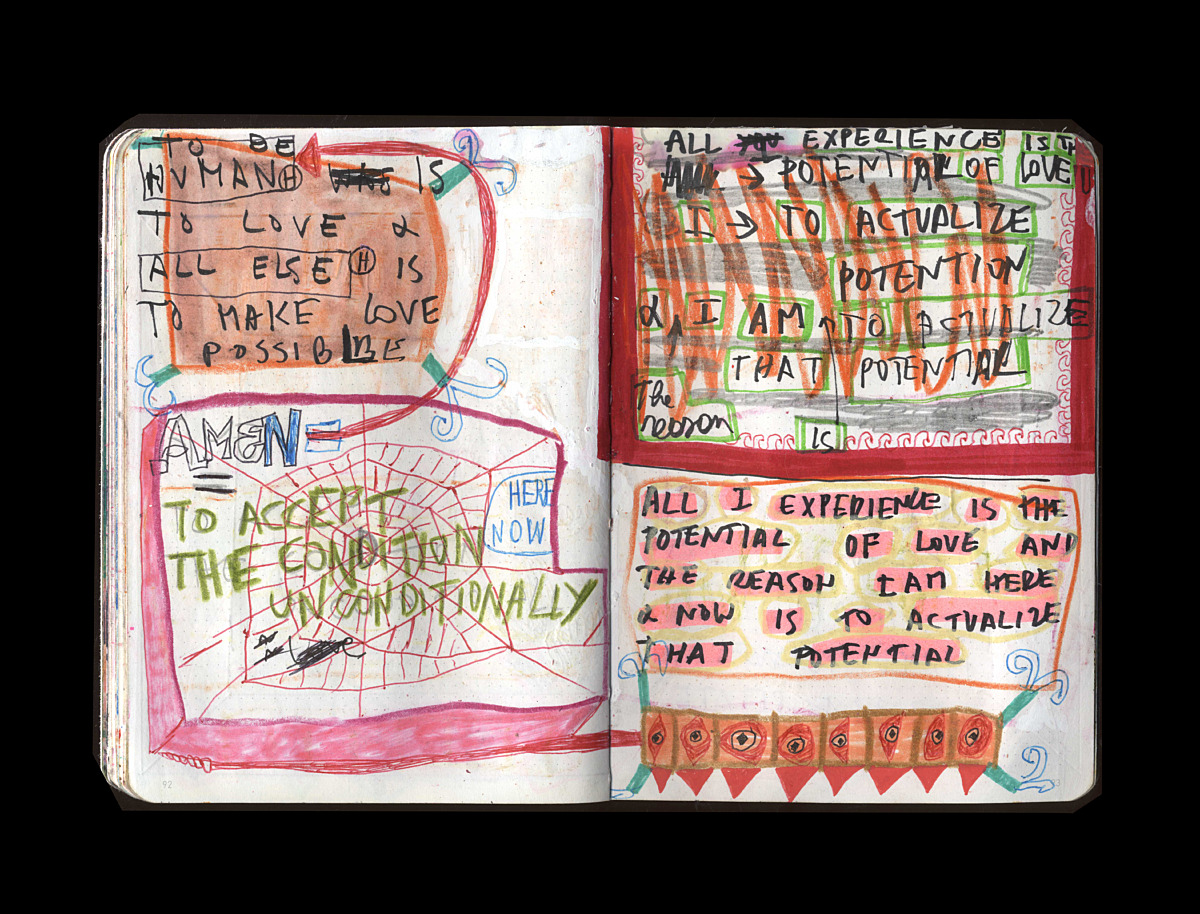 TO BE
HUMAN H IS
TO LOVE &
ALL ELSE H IS
TO MAKE LOVE
POSSIBLE
AMEN =
HERE
NOW
TO ACCEPT
THE CONDITION
UNCONDITIONALLY
92
ALL EXPERIENCE IS TH
→ POTENTIAL OF LOVE
I → TO ACTUALIZE
POTENTION
& I AM TO ACTUALIZE
THAT POTENTIAL
The
reason
IS
ALL I EXPERIENCE IS THE
POTENTIAL OF LOVE AND
THE REASON I AM HERE
& NOW IS TO ACTUALIZE
THAT POTENTIAL